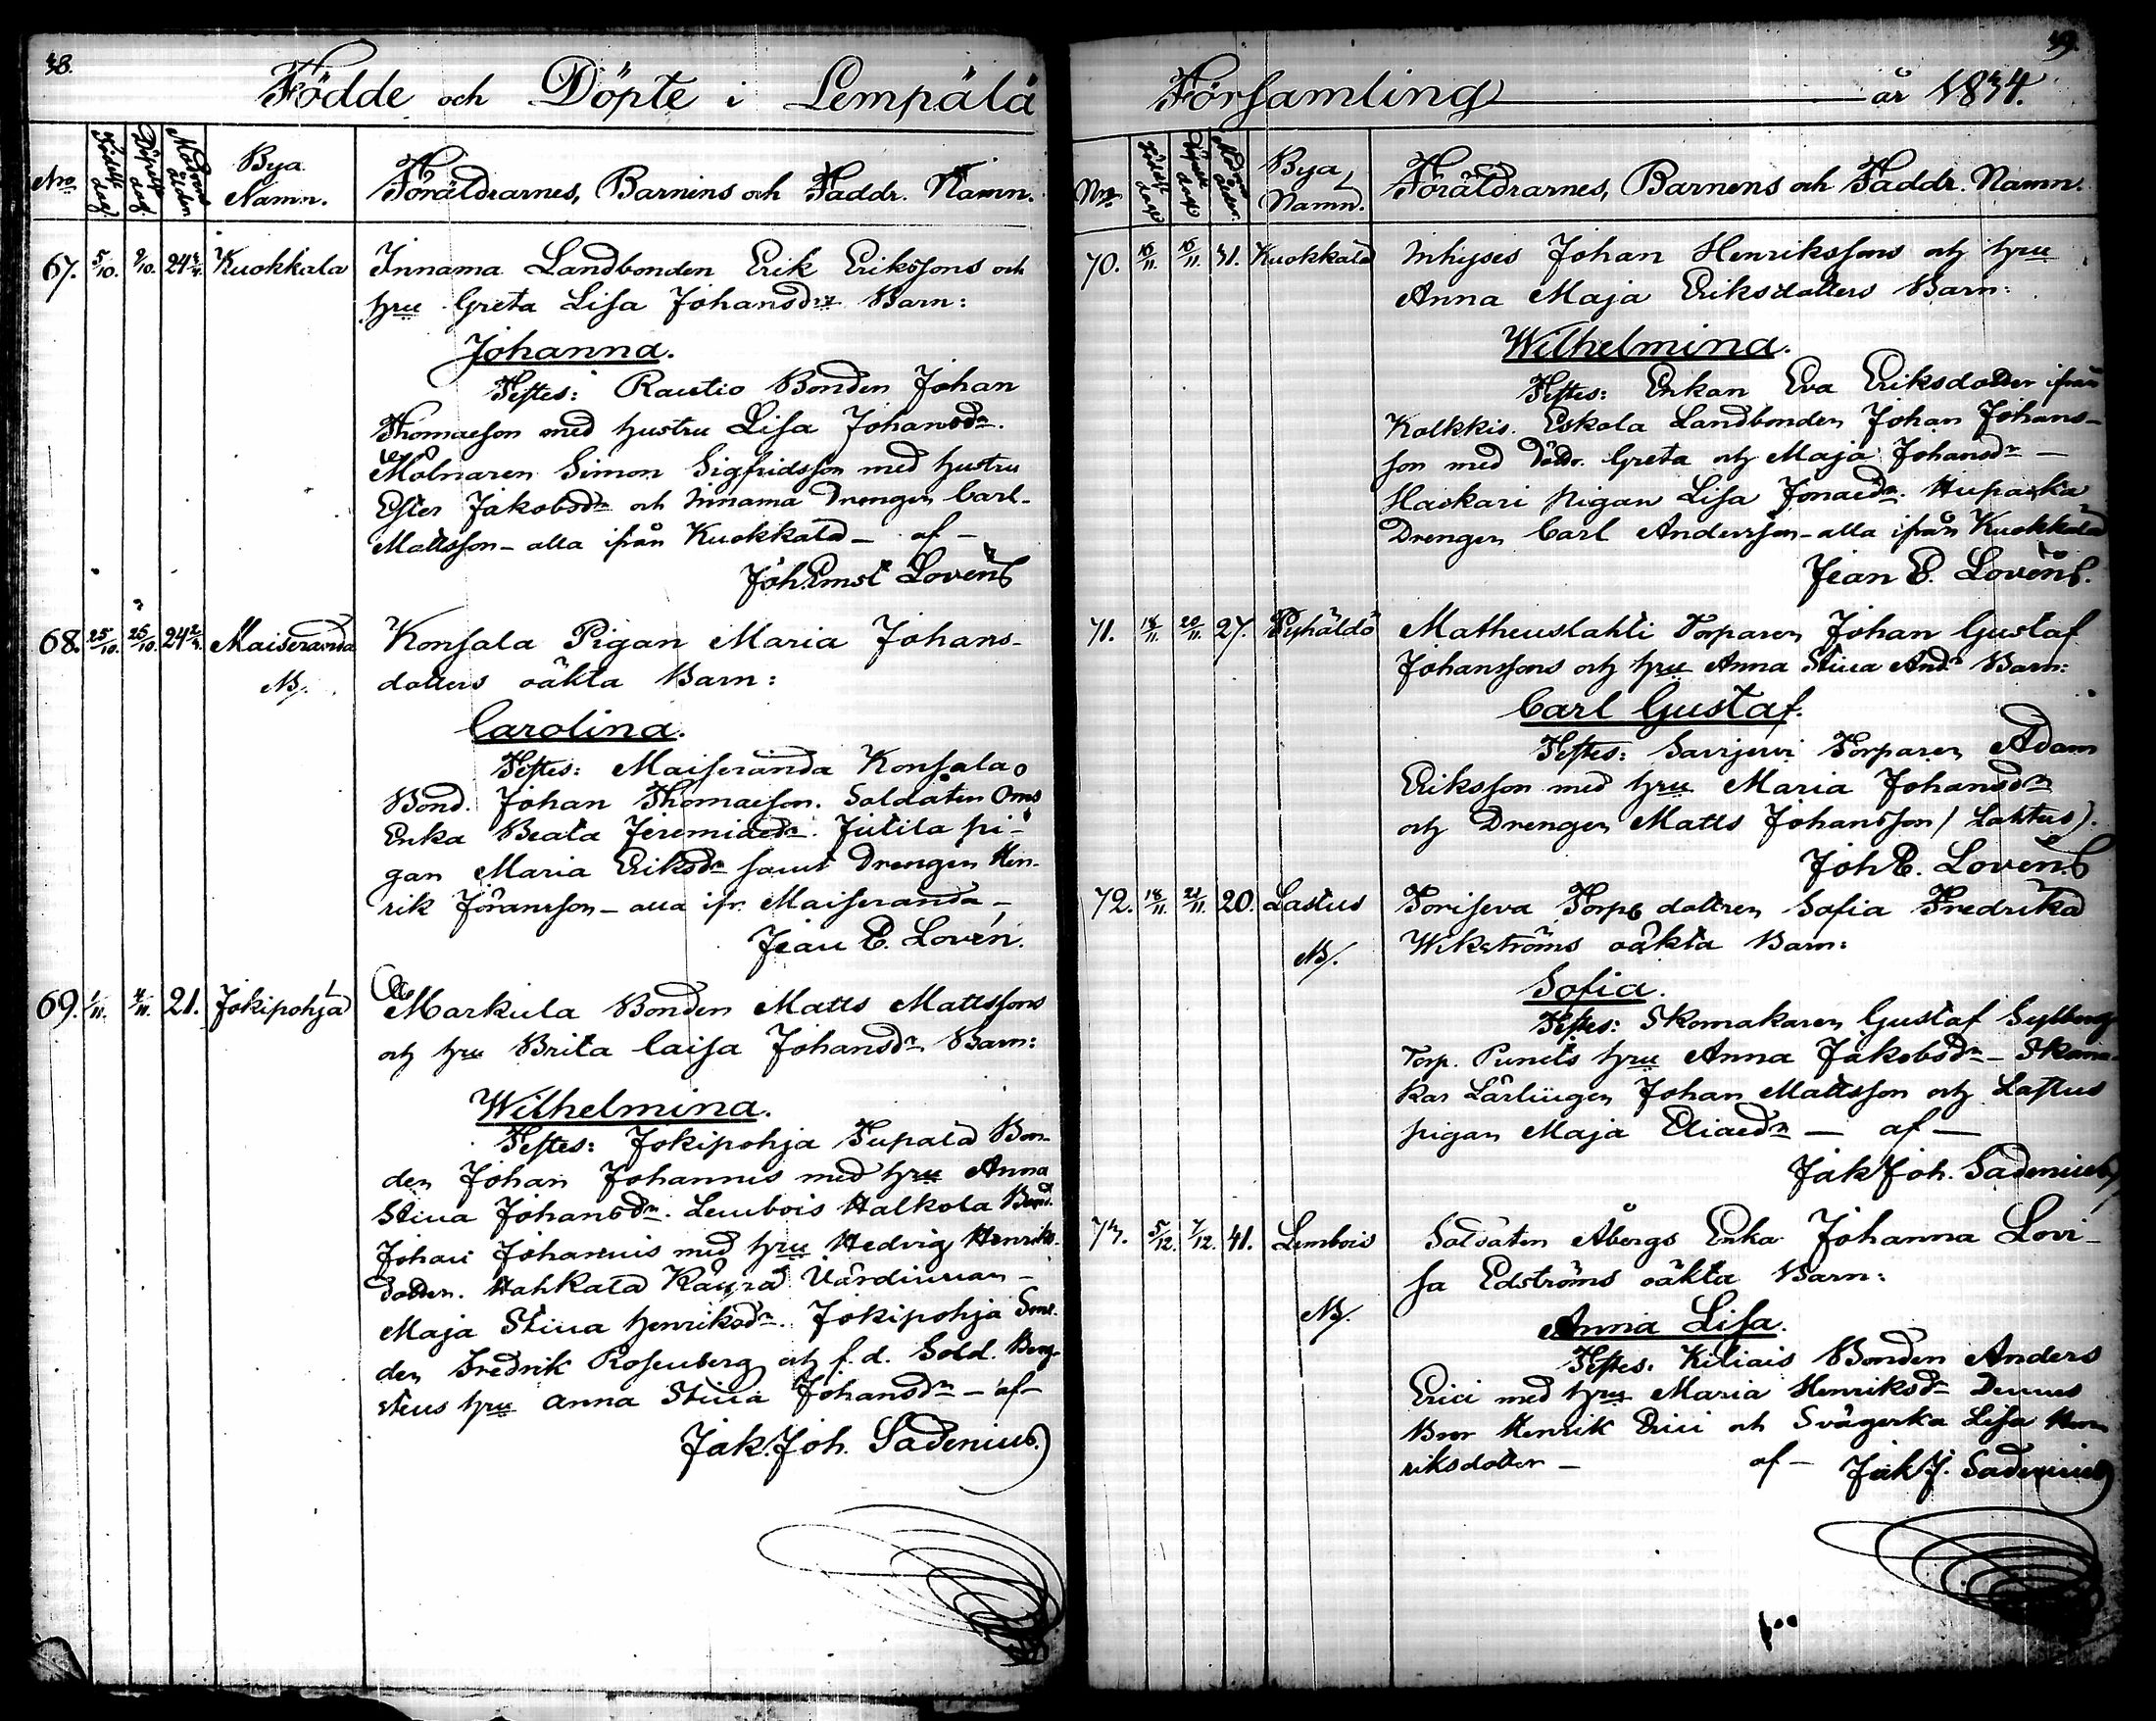 38.
Födde och Döpte i Lempälä
No
Födelse dag
Döpelse dag
Modrens ålder
Bya Namn.
Föräldrarnes, Barnens och Faddr. Namn.
67. 5/10. 9/10. 24 Kuokkala Innama Landbonden Erik Erikssons och
hru Greta Lisa Johansdr Barn:
Johanna.
Testes: Rautio Bonden Johan
Thomasson med hustru Lisa Johansdr.
Mölnaren Simon Sigfridsson med hustru
Ester Jakobsdr och Innama Drengen Carl
Mattsson – alla ifrån Kuokkala – af –
Joh. Ernst Lovén
68. 25/10. 25/10. 24 2/4. Maiseranda Konsala Pigan Maria Johans-
NB. dotters oäkta Barn:
Carolina.
Testes: Maiseranda Konsala
Bond. Johan Thomasson. Soldaten Oms
Enka Beata Jeremiaedr. Jutila pi-
gan Maria Eriksdr samt Drengen Hen-
rik Göransson – alla ifr. Maiseranda –
Jean E. Lovén.
69. 1/11. 4/11. 21. Jokipohja Markula Bonden Matts Mattssons
och hru Brita Caisa Johansdr Barn:
Wilhelmina.
Testes: Jokipohja Tupala Bon-
den Johan Johannis med hru Anna
Stina Johansdr. Lembois Halkola Bond.
Johan Johannis med hru Hedvig Henriks-
dotter. Hahkala Värdinnan –
Maja Stina Henriksdr. Jokipohja
den Fredrik Rosenberg och f.d. Sold. Berg-
stens hru Anna Stina Johansdr – af –
Jak. Joh. Sadenius.
39.
Församling år 1834.
Nro.
Födelse dag
Döpelse dag
Modrens ålder.
Bya Namn.
Föräldrarnes, Barnens och Faddr. Namn.
70. 16/11. 16/11. 31. Kuokkala Inhyses Johan Henrikssons och hru
Anna Maja Eriksdotters Barn:
Wilhelmina.
Testes: Enkan Eva Eriksdotter ifrån
Kolkkis. Eskola Landbonden Johan Johans-
son med Döttr. Greta och Maja Johansdr –
Haskari pigan Lisa Jonaedr.
Drengen Carl Andersson – alla ifrån Kuokkala
Jean E. Lovén.
71. 18/11. 20/11. 27. Pyhäldö Matheuslahti Torparen Johan Gustaf
Johanssons och hru Anna Stina Andr Barn:
Carl Gustaf.
Testes: Savijervi Torparen Adam
Eriksson med hru Maria Johansdr
och Drengen Matts Johansson (Lahtus).
Joh E. Lovén
72. 18/11. 21/11. 20. Lastus Koriseva Torps dottren Sofia Fredrika
NB. Wikströms oäkta Barn:
Sofia.
Testes: Skomakaren Gustaf Sylberg
Torp. hru Anna Jakobsdr – Skoma-
kar Lärlingen Johan Mattsson och Lastus
pigan Maja Eliaedr – af –
Jak Joh. Sadenius
73. 5/12. 7/12. 41. Lembois Soldaten Åbergs Enka Johanna Lovi-
sa Edströms oäkta Barn:
NB.
Anna Lisa.
Testes. Kiliais Bonden Anders
Erici med hru Maria Henriksdr Dennes
Bror Henrik Erici och Svägerska Lisa Hen-
riksdotter – af – Jak J. Sadenius